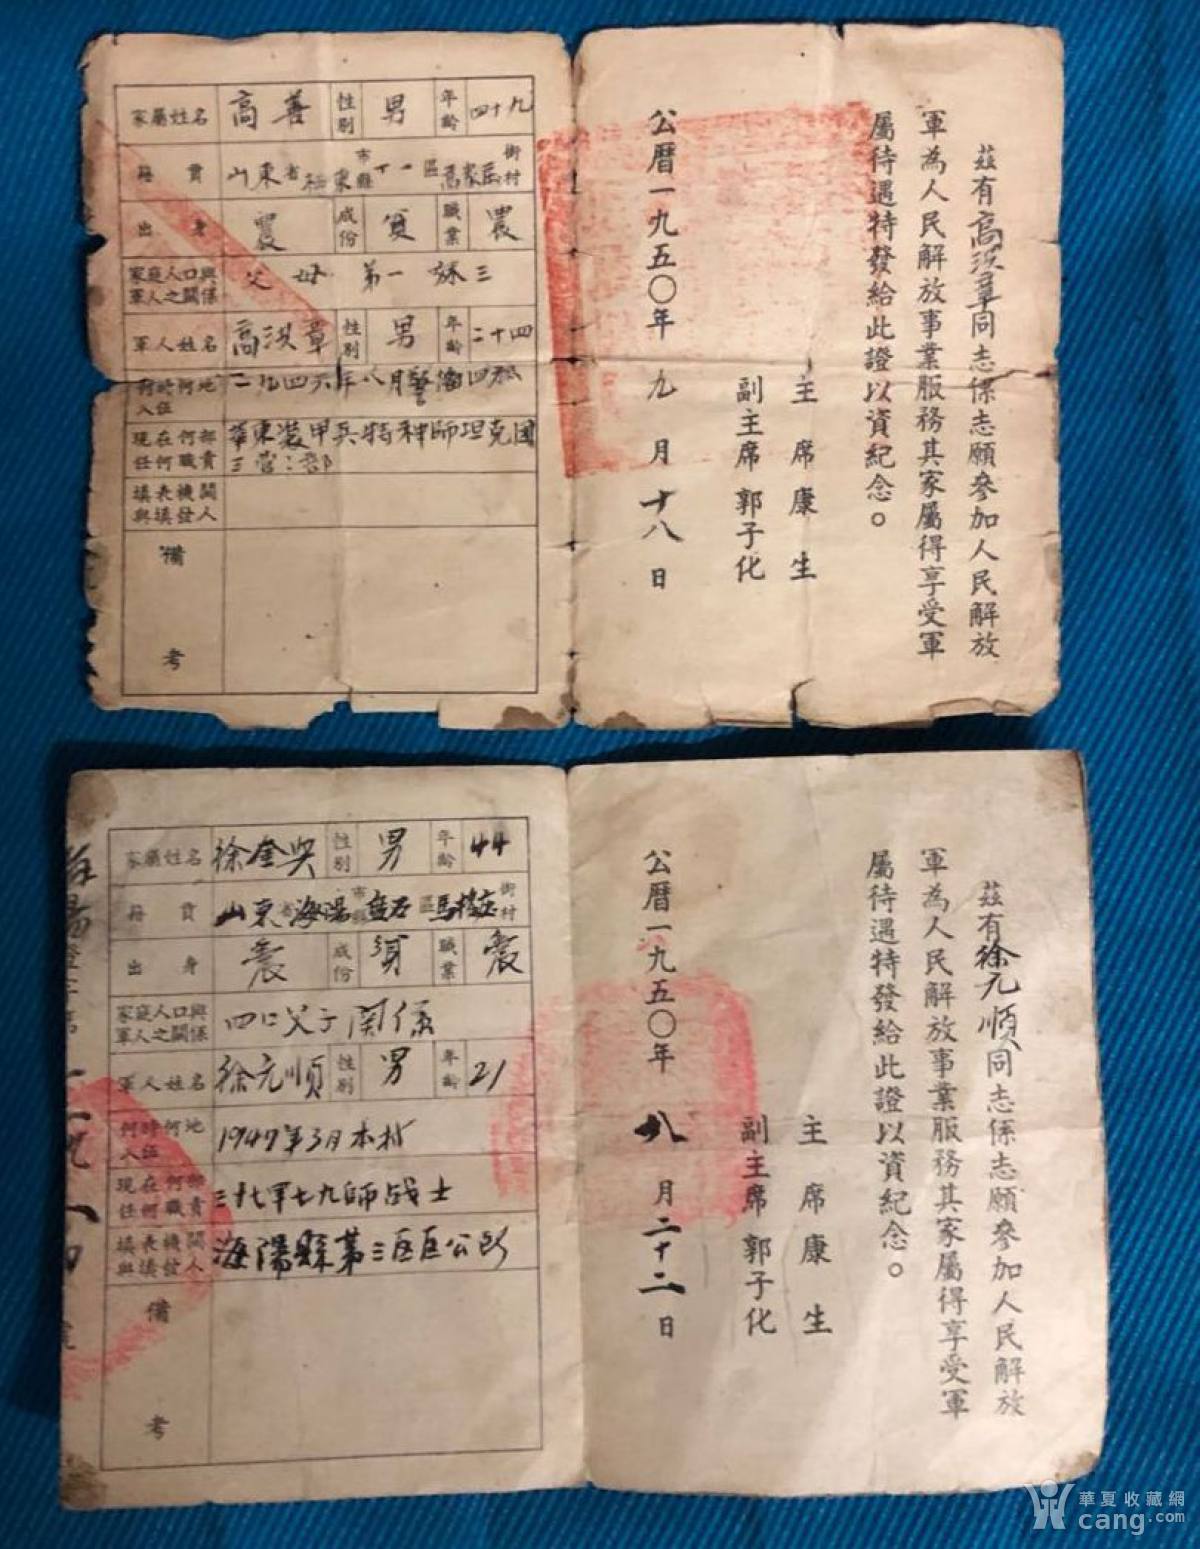 茲有高洪章同志係志願參加人民解放
軍為人民解放事業服務其家屬得享受軍
屬待遇特發給此證以資紀念。
主席康生
副主席郭子化
公曆一九五〇年九月十八日
家屬姓名 高善 性別 男 年齡 四十九
籍貫 山東省 東 市縣 十一區 高家 街村
出身 農 成份 貧 職業 農
家庭人口與軍人之關係 父 母 弟一 妹三
軍人姓名 高洪章 性別 男 年齡 二十四
何時何地入伍 一九四六年八月 四
現在何部任何職責 華東裝甲兵特种師坦克團三营二部
填表機關與填發人
備考
茲有徐元順同志係志願參加人民解放
軍為人民解放事業服務其家屬得享受軍
屬待遇特發給此證以資紀念。
主席康生
副主席郭子化
公曆一九五〇年八月二十二日
家屬姓名 徐奎 性別 男 年齡 44
籍貫 山東省海陽市縣盘石區馬 庄街村
出身 農 成份 職業 農
家庭人口與軍人之關係 四口父子関係
軍人姓名 徐元順 性別 男 年齡 21
何時何地入伍 1947年3月本村
現在何部任何職責 七九師战士
填表機關與填發人 海陽縣第三区区公所
備考
華夏收藏網
cang.com